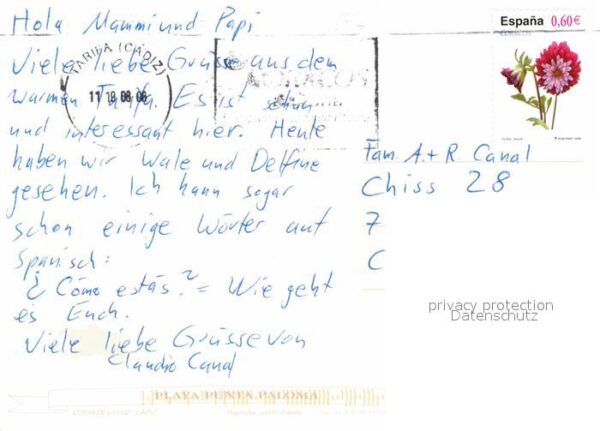 Hola Mammi und Papi
Viele liebe Grüsse aus dem
warmen Tarifa. Es ist schön
und interessant hier. Heute
haben wir Wale und Delfine
gesehen. Ich kann sogar
schon einige Wörter auf
Spanisch:
¿Cómo estás? = Wie geht
es Euch.
Viele liebe Grüsse von
Claudio Canal
TARIFA (CÁDIZ)
España 0,60€
CORREOS
Fam. A. + R. Canal
Chiss 28
7
C
privacy protection
Datenschutz
PLAYA PUNTA PALOMA